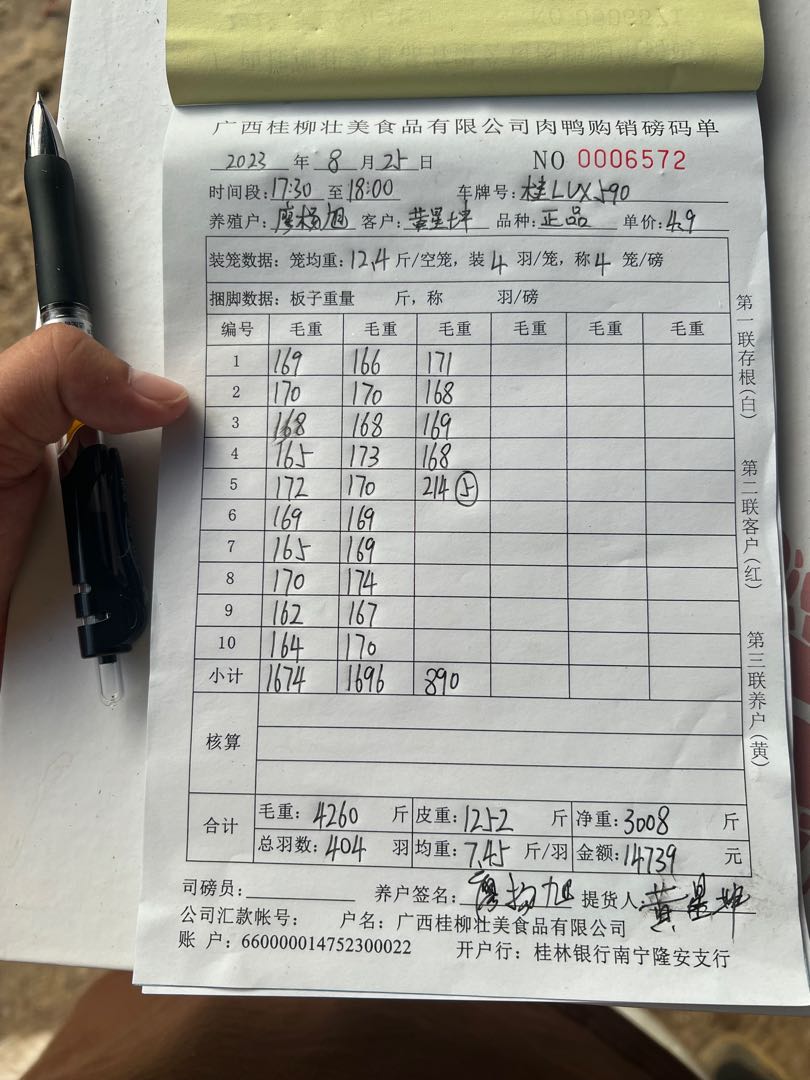 广西桂柳壮美食品有限公司肉鸭购销磅码单
2023 年 8 月 25 日 NO 0006572
时间段: 17:30 至 18:00 车牌号: 桂LUX590
养殖户: 廖杨旭 客户: 黄星坤 品种: 正品 单价: 4.9
装笼数据: 笼均重: 12.4 斤/空笼, 装 4 羽/笼, 称 4 笼/磅
捆脚数据: 板子重量 斤, 称 羽/磅
编号 毛重 毛重 毛重 毛重 毛重 毛重
1 169 166 171
2 170 170 168
3 168 168 169
4 165 173 168
5 172 170 214 ⑤
6 169 169
7 165 169
8 170 174
9 162 167
10 164 170
小计 1674 1696 890
核算
合计
毛重: 4260 斤 皮重: 1252 斤 净重: 3008 斤
总羽数: 404 羽 均重: 7.45 斤/羽 金额: 14739 元
司磅员: 养户签名: 廖杨旭 提货人: 黄星坤
公司汇款帐号: 户名: 广西桂柳壮美食品有限公司
账 户: 660000014752300022 开户行: 桂林银行南宁隆安支行
第一联存根(白)
第二联客户(红)
第三联养户(黄)